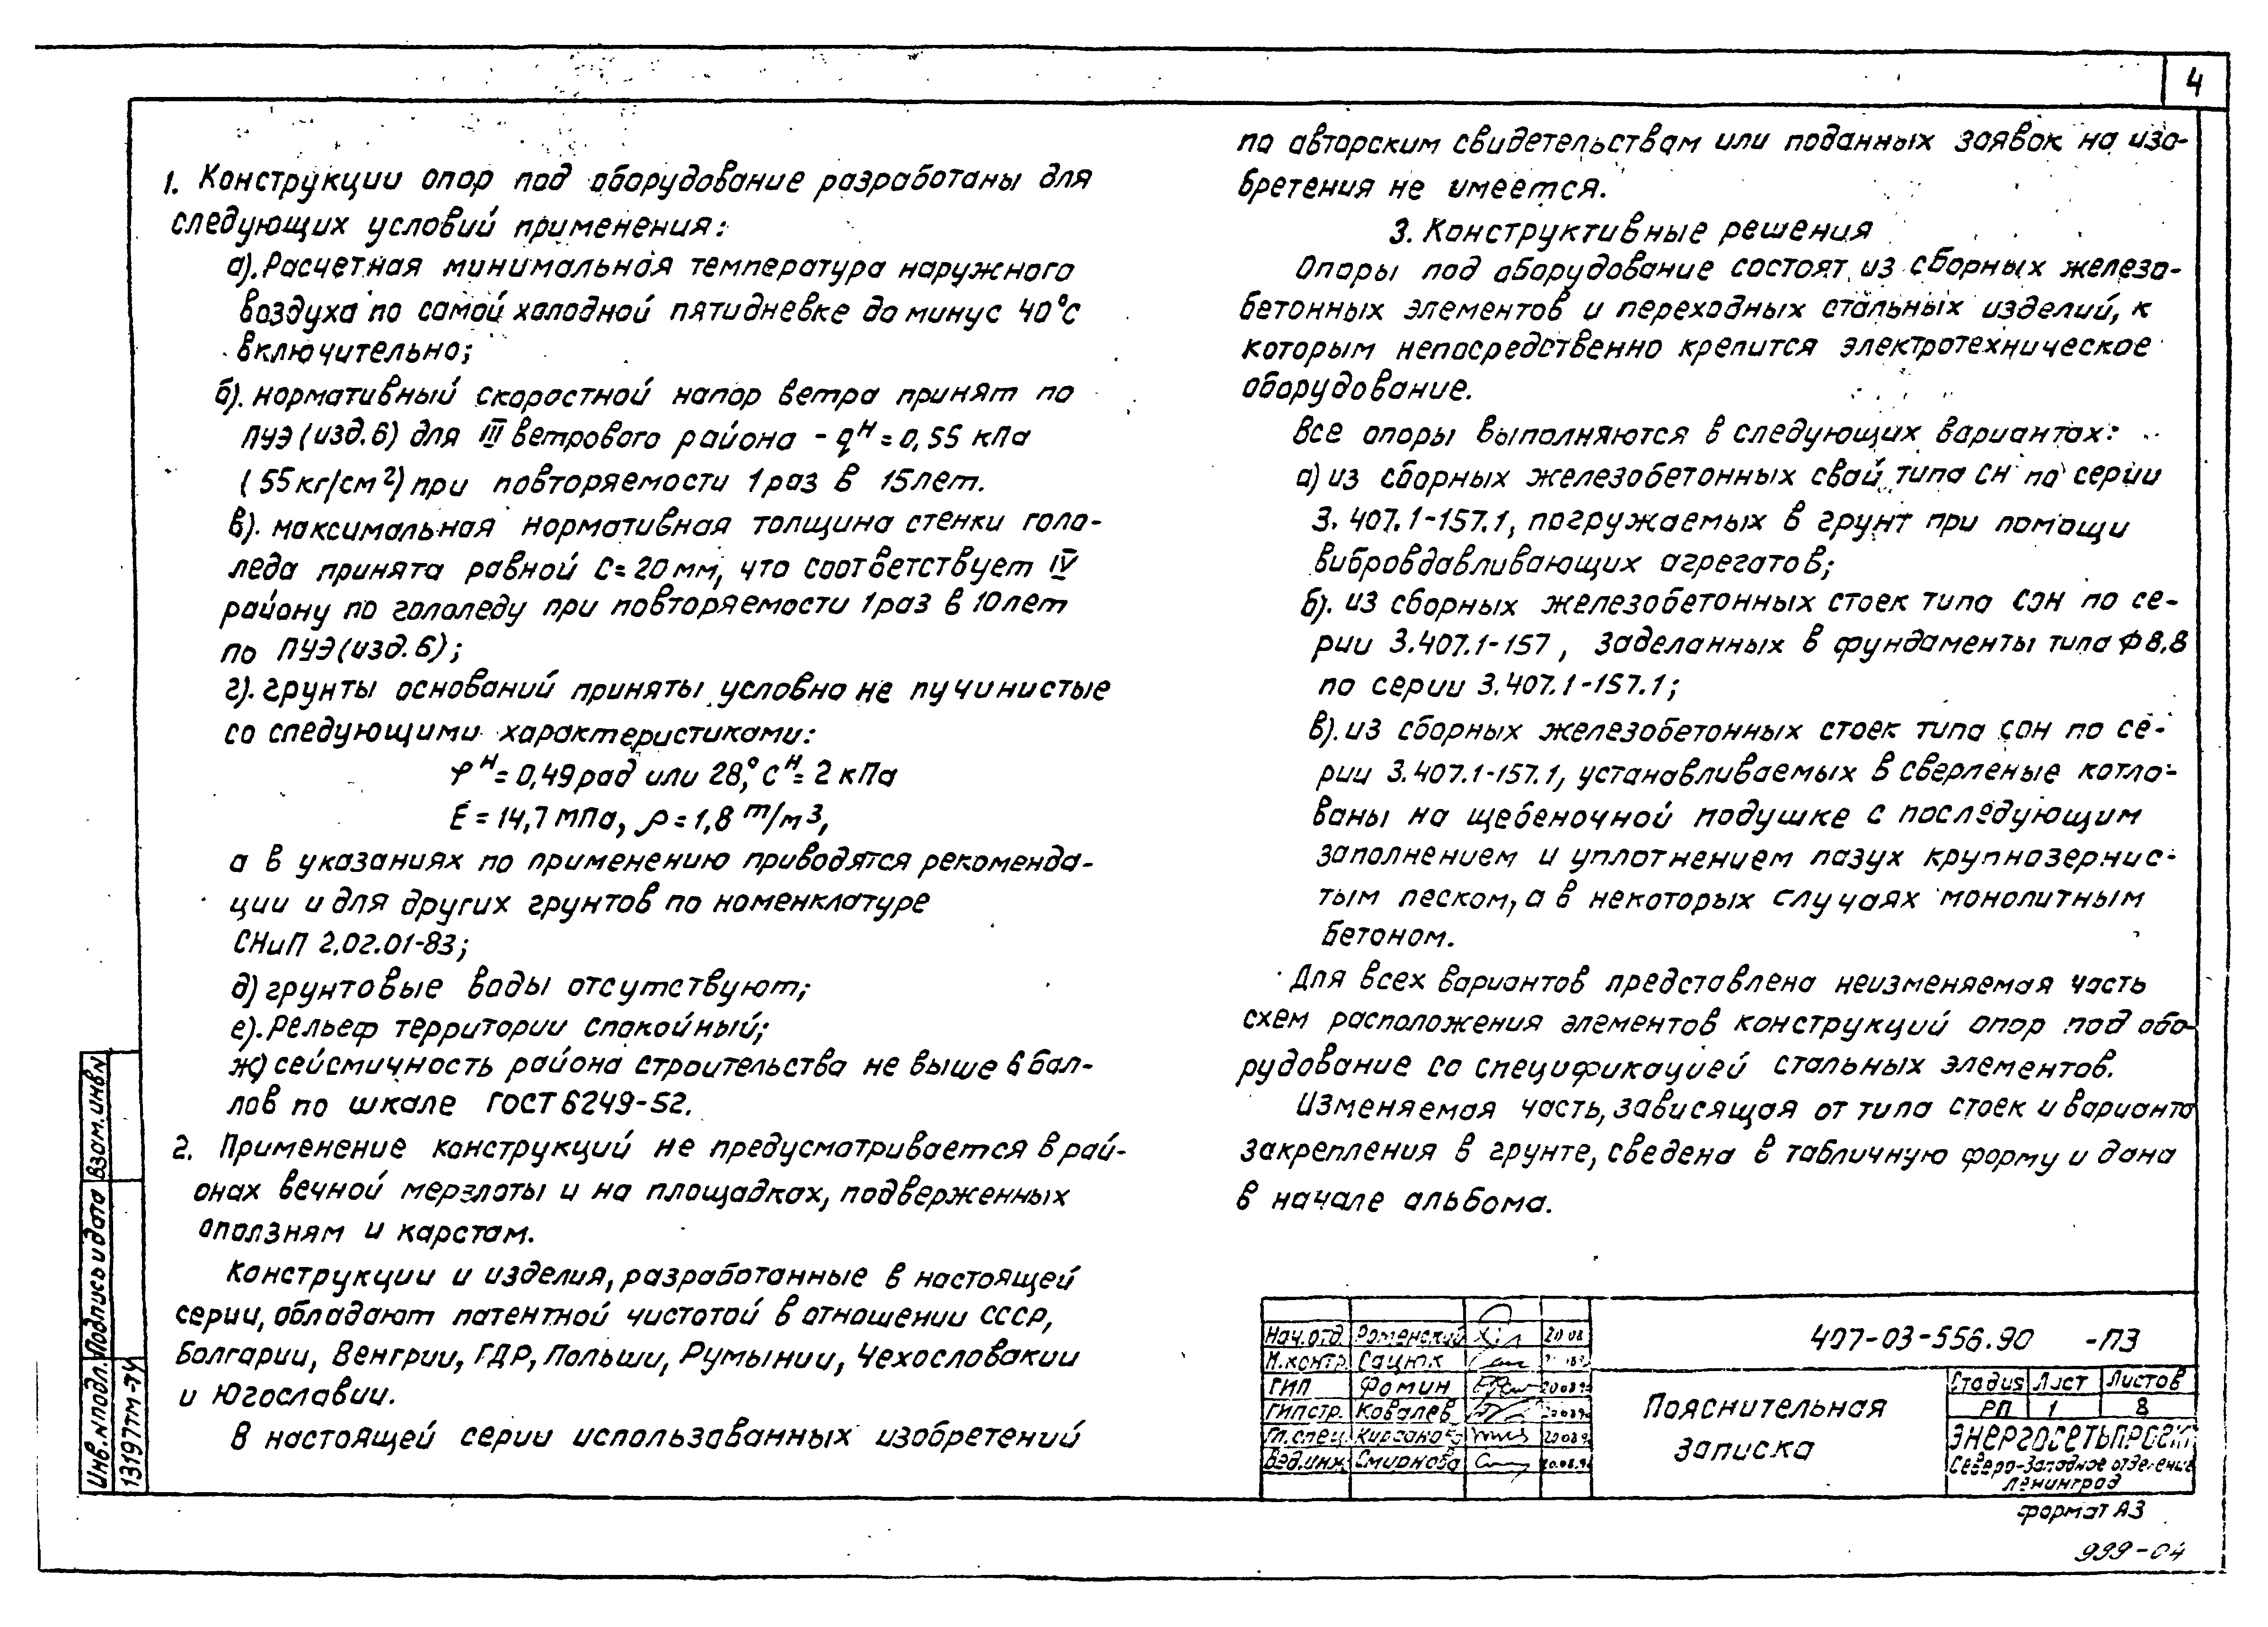 4
1. Конструкции опор под оборудование разработаны для
следующих условий применения:
а). Расчетная минимальная температура наружного
воздуха по самой холодной пятидневке до минус 40°С
включительно;
б). нормативный скоростной напор ветра принят по
ПУЭ (изд. 6) для III ветрового района - qᴴ = 0,55 кПа
(55 кг/см²) при повторяемости 1 раз в 15 лет.
в). максимальная нормативная толщина стенки голо-
леда принята равной С = 20 мм, что соответствует IV
району по гололеду при повторяемости 1 раз в 10 лет
по ПУЭ (изд. 6);
г). грунты оснований приняты условно не пучинистые
со следующими характеристиками:
φᴴ = 0,49 рад или 28°, Сᴴ = 2 кПа
Е = 14,7 МПа, ρ = 1,8 т/м³,
а в указаниях по применению приводятся рекоменда-
ции и для других грунтов по номенклатуре
СНиП 2.02.01-83;
д) грунтовые воды отсутствуют;
е). Рельеф территории спокойный;
ж) сейсмичность района строительства не выше 6 бал-
лов по шкале ГОСТ 6249-52.
2. Применение конструкций не предусматривается в рай-
онах вечной мерзлоты и на площадках, подверженных
оползням и карстам.
Конструкции и изделия, разработанные в настоящей
серии, обладают патентной чистотой в отношении СССР,
Болгарии, Венгрии, ГДР, Польши, Румынии, Чехословакии
и Югославии.
В настоящей серии использованных изобретений
по авторским свидетельствам или поданных заявок на изо-
бретения не имеется.
3. Конструктивные решения
Опоры под оборудование состоят из сборных железо-
бетонных элементов и переходных стальных изделий, к
которым непосредственно крепится электротехническое
оборудование.
Все опоры выполняются в следующих вариантах:
а) из сборных железобетонных свай типа СН по серии
3.407.1-157.1, погружаемых в грунт при помощи
вибровдавливающих агрегатов;
б). из сборных железобетонных стоек типа СОН по се-
рии 3.407.1-157, заделанных в фундаменты типа Ф8.8
по серии 3.407.1-157.1;
в). из сборных железобетонных стоек типа СОН по се-
рии 3.407.1-157.1, устанавливаемых в сверленые котло-
ваны на щебеночной подушке с последующим
заполнением и уплотнением пазух крупнозернис-
тым песком, а в некоторых случаях монолитным
бетоном.
Для всех вариантов представлена неизменяемая часть
схем расположения элементов конструкций опор под обо-
рудование со спецификацией стальных элементов.
Изменяемая часть, зависящая от типа стоек и варианта
закрепления в грунте, сведена в табличную форму и дана
в начале альбома.
Взам. инв №
Подпись и дата
Инв. № подл.
13197тм-т4
Нач. отд. Роменский 20.08
Н. контр. Сацюк
ГИП Фомин
ГИП стр. Ковалев
Гл. спец. Кирсанова
Вед. инж. Смирнова
407-03-556.90 -ПЗ
Пояснительная
записка
Стадия Лист Листов
РП 1 8
ЭНЕРГОСЕТЬПРОЕКТ
Северо-Западное отделение
Ленинград
формат А3
999-04